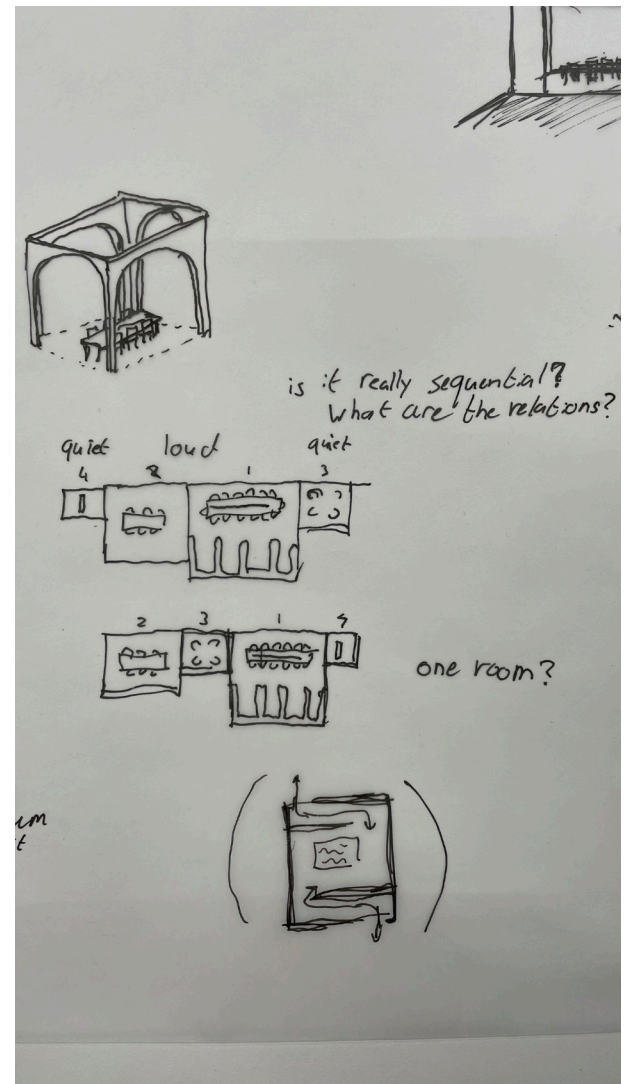 is it really sequential?
What are the relations?
quiet loud quiet
4 2 1 3
2 3 1 4
one room?